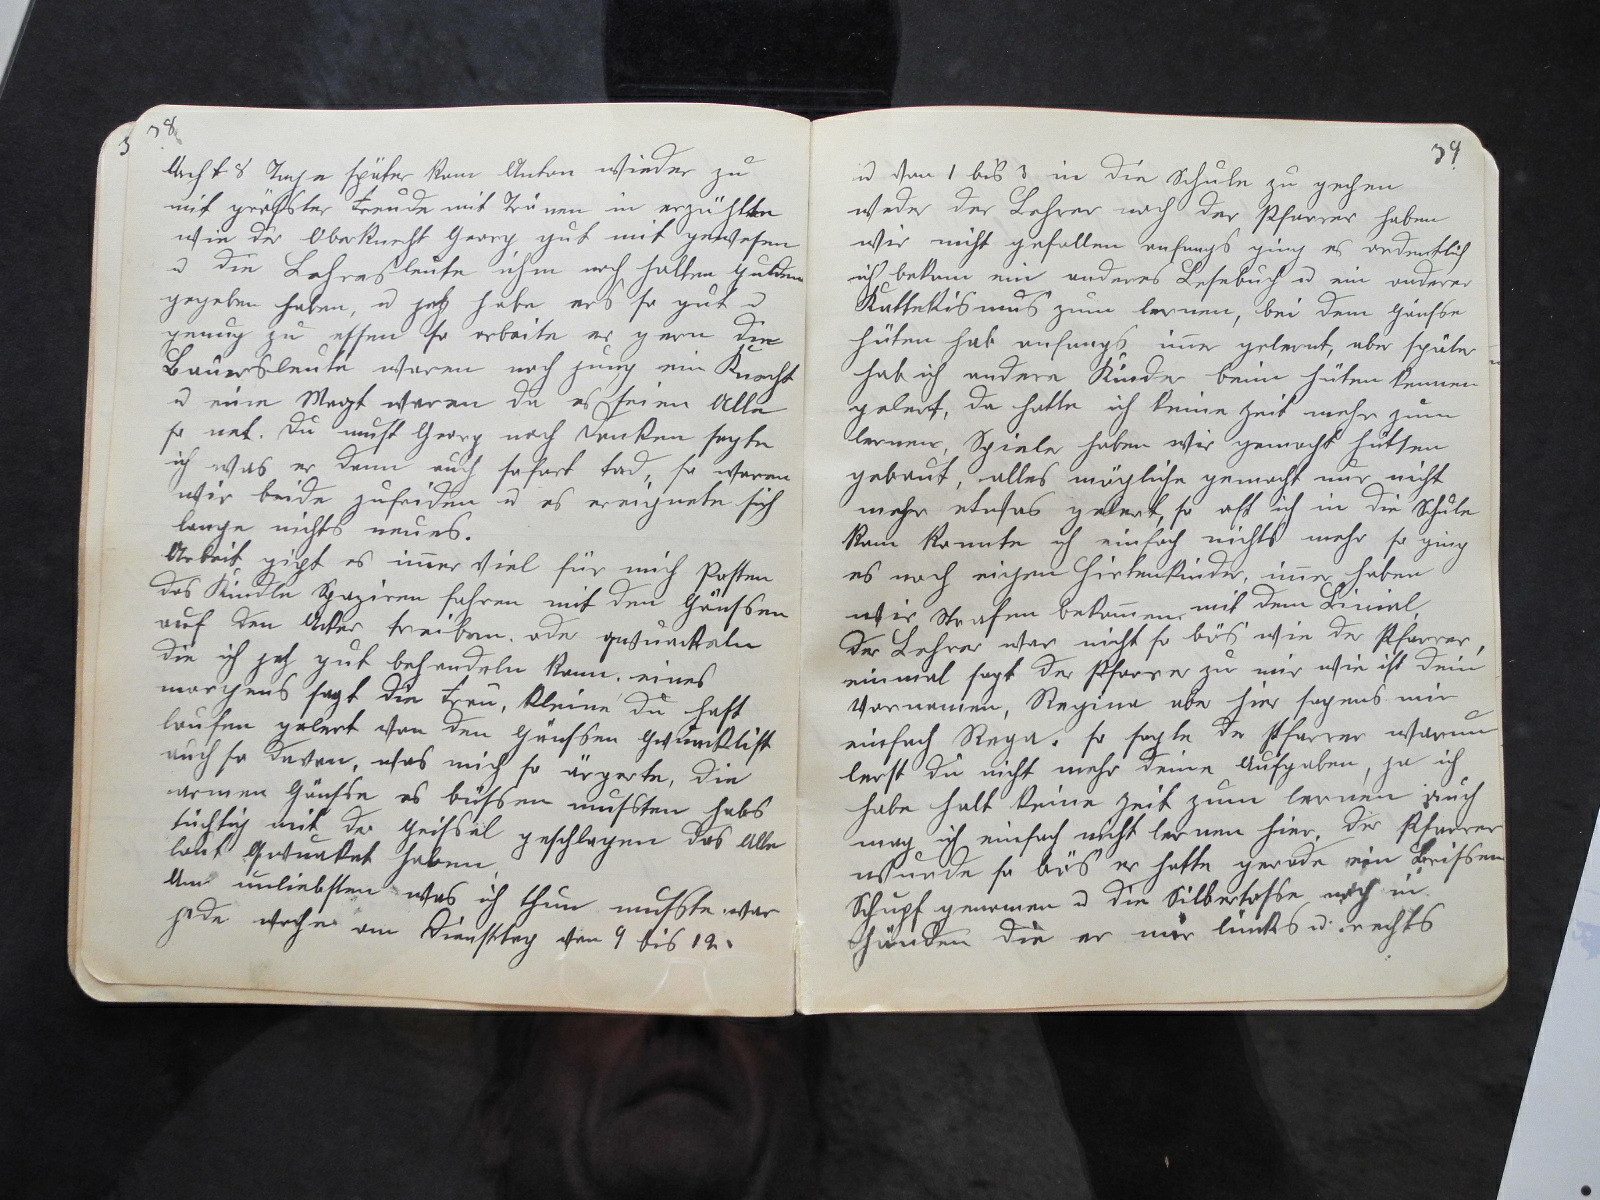 38
Acht 8 Tage später kam Anton wieder zu
mit größter Freude mit Tränen in erzählten
wie der Oberknecht Georg gut mit gewesen
u die Lehresleute ihm noch halten Gulden
gegeben haben, u jetz habe ers so gut u
genug zu essen so arbeite er gern die
Bauersleute waren noch jung ein Knecht
u eine Magt waren da es seien Alle
so net. Du must Georg noch Danken sagte
ich was er dann auch sofort tad, so waren
wir beide zufriden u es ereignete sich
lange nichts neues.
Arbeit gipt es imer viel für mich Posten
das Kindle Spaziren fahren mit den Gänsen
auf den Aker treiben. oder
die ich jetz gut behandeln kann. eines
morgens sagt die Frau, kleine du hast
laufen gelert von den Gänsen
auch so davon, was mich so ärgerte, die
armen Gänse es büssen mussten habs
tüchtig mit der Geissel geschlagen das Alle
laut haben.
Am unliebsten was ich thun musste war
jede woche am Dienstteg von 9 bis 12.
39
u von 1 bis 3 in die Schule zu gehen
weder der Lehrer noch der Pfarrer haben
wir nicht gefallen anfangs ging es ordentlich
ich bekam ein anderes Lesebuch u ein anderer
Kattekismus zum lernen, bei dem Gänse
hüten hab anfangs imer gelernt, aber später
hab ich andere Kinder beim hüten kennen
gelert, da hatte ich keine Zeit mehr zum
lernen, Spiele haben wir gemacht hütten
gebaut, alles mögliche gemacht nur nicht
mehr etwas gelert, so oft ich in die Schule
kam konnte ich einfach nichts mehr so ging
es noch einigen Hirtenkinder, imer haben
wir Strafen bekomen mit dem Linial,
der Lehrer war nicht so bös wie der Pfarrer,
einmal sagt der Pfarrer zu mir wie ist dein
Vornamen, Regina aber hier sagens mir
einfach Rega. so sagte der Pfarrer warum
lerst du nicht mehr deine Aufgaben, ja ich
habe halt keine Zeit zum lernen auch
mag ich einfach nicht lernen hier. der Pfarrer
wurde so bös er hatte gerade ein Brissen
Schupf genomen u die Silbertasse noch in
Händen die er mir lincks u. rechts